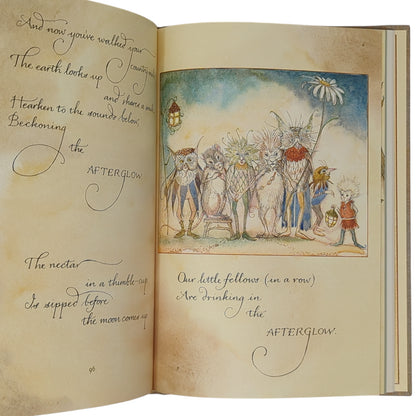 And now you've walked your
country mile
The earth looks up
and shares a smile
Hearken to the sounds below,
Beckoning
the
AFTERGLOW.
The nectar
in a thimble-cup
Is sipped before
the moon comes up
96
Our little fellows (in a row)
Are drinking in
the
AFTERGLOW.